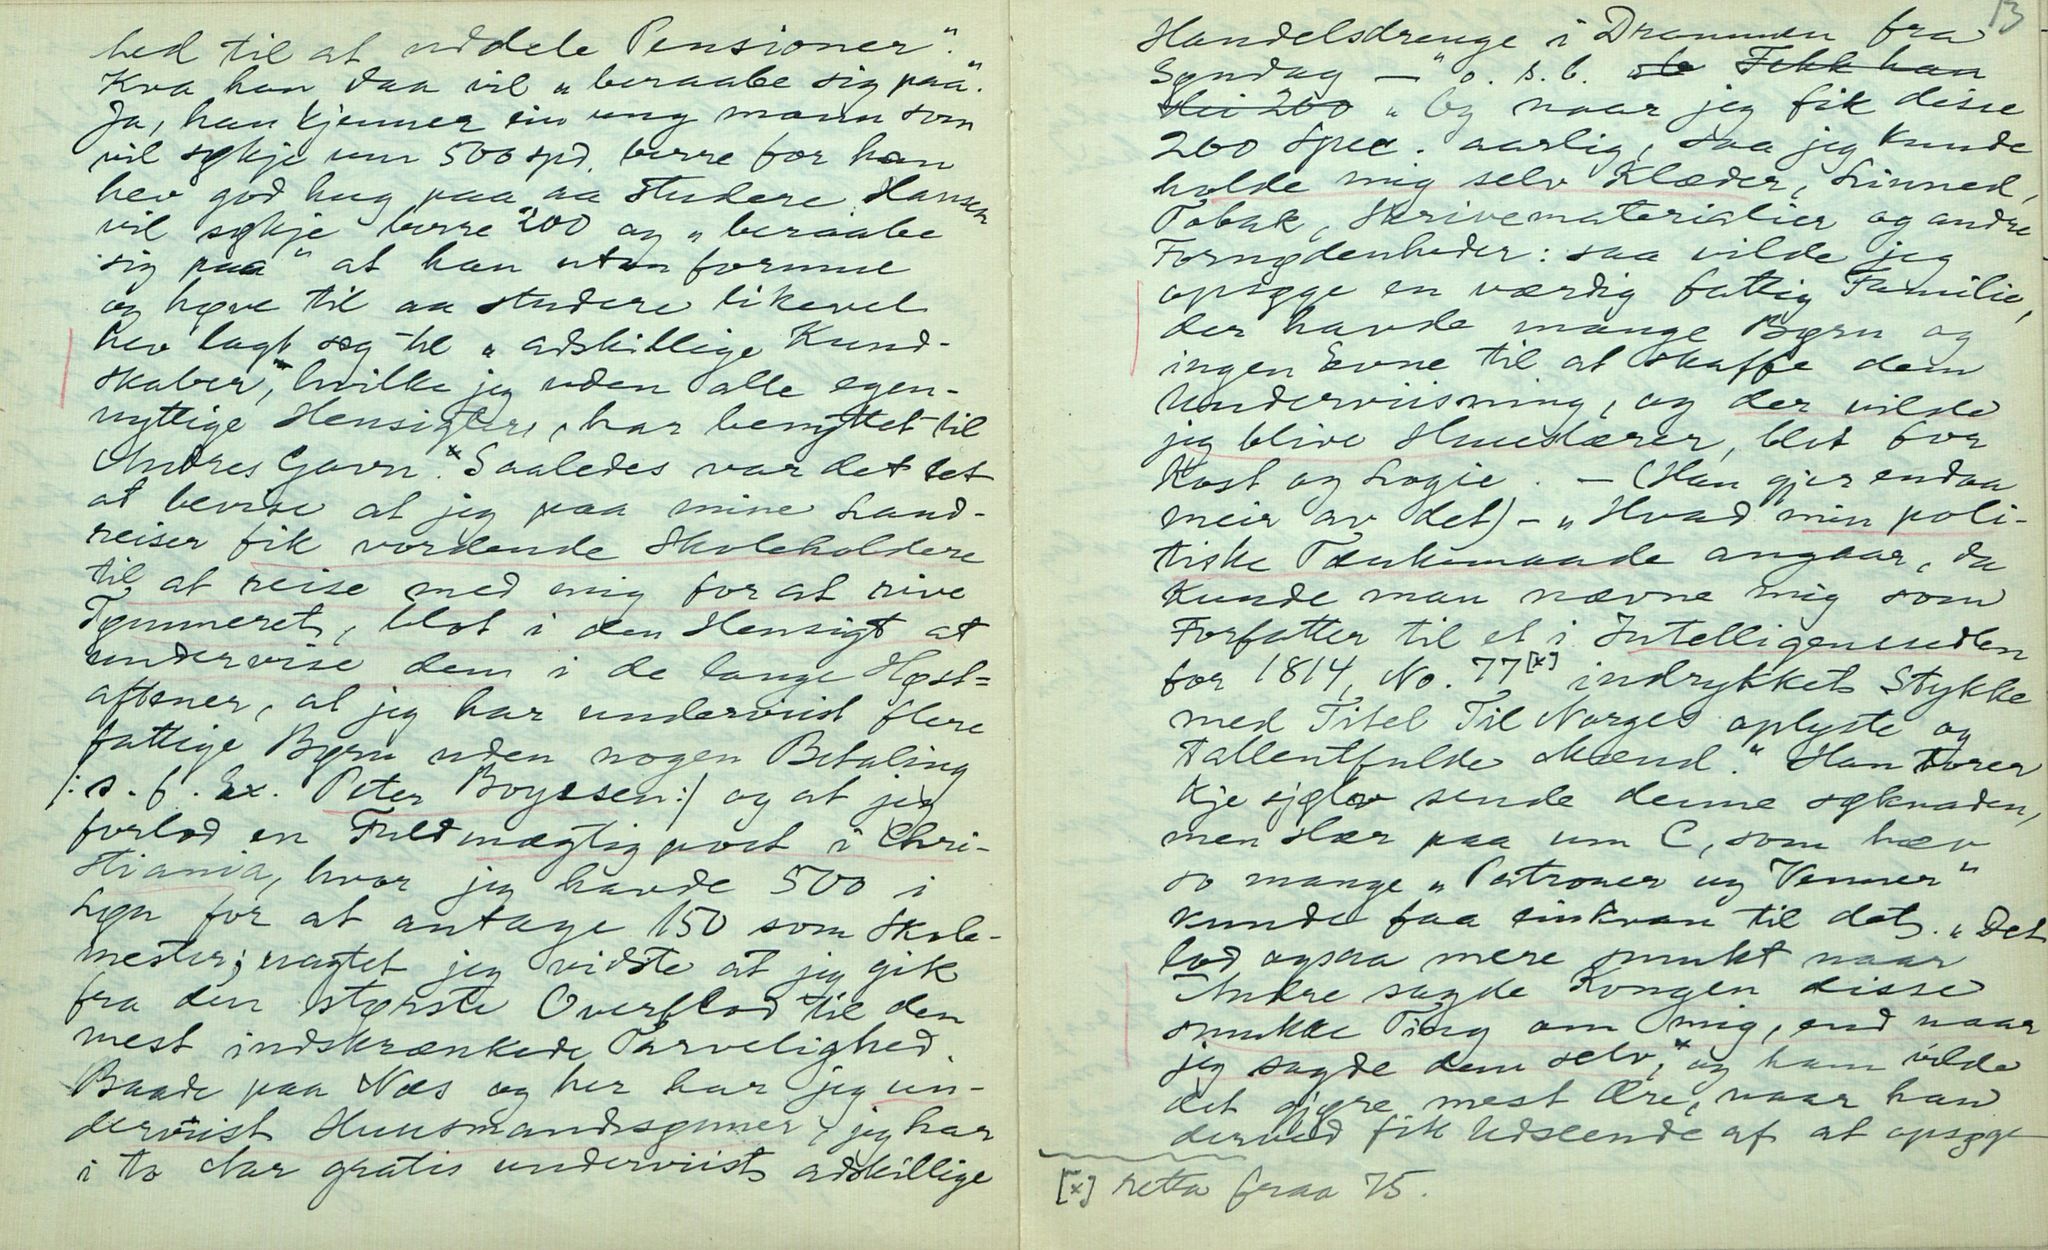 hed til at uddele Pensioner".
Kva han daa vil „beraabe sig paa".
Ja, han kjenner ein ung mann som
vil søkje um 500 spd. berre for han
hev god hug paa aa studere. Hansen
vil søkje berre 200 og „beraabe
sig paa" at han utan formue
og høve til aa studere likevel
hev lagt seg til „adskillige Kund-
skaber, hvilke jeg uden alle egen-
nyttige Hensigter, har benyttet til
Andres Gavn.* Saaledes var det let
at bevise at jeg paa mine Land-
reiser fik vordende Skoleholdere
til at reise med mig for at rive
Tømmeret, blot i den Hensigt at
undervise dem i de lange Høst=
aftener, at jeg har underviist flere
fattige Børn uden nogen Betaling
/: s. f. Ex. Peter Boyesen :/ og at jeg
forlod en Fuldmægtigpost i Chri-
stiania, hvor jeg havde 500 i
Løn for at antage 150 som Skole-
mester; uagtet jeg vidste at jeg gik
fra den største Overflod til den
mest indskrænkede Tarvelighed.
Baade paa Næs og her har jeg un-
derviist Huusmandssønner, jeg har
i to Aar gratis underviist adskillige
13
Handelsdrenge i Drammen fra
Søndag — " o. s. b. Fekk han
dei 200 „Og naar jeg fik disse
200 Spec. aarlig, saa jeg kunde
holde mig selv Klæder, Linned,
Tobak, Skrivematerialier og andre
Fornødenheder: saa vilde jeg
opsøge en værdig fattig Familie,
der havde mange Børn og
ingen Evne til at skaffe dem
Underviisning, og der vilde
jeg blive Huuslærer, blot for
Kost og Logie. — (Han gjer endaa
meir av det) — „Hvad min poli-
tiske Tænkemaade angaar, da
kunde man nævne mig som
Forfatter til et i Intelligenssedlen
for 1814, No. 77[x] indrykket Stykke
med Titel Til Norges oplyste og
tallentfulde Mænd." Han torer
kje sjølv sende denne søknaden,
men slær paa um C, som hev
so mange „Patroner og Venner"
kunde faa einkvan til det. „Det
lod ogsaa mere smukt naar
Andre sagde Kongen disse
smukke Ting om mig, end naar
jeg sagde dem selv,* og ham vilde
det gjøre mest Ære, naar han
derved fik Udseende af at opsøge
[x] retta fraa 75.